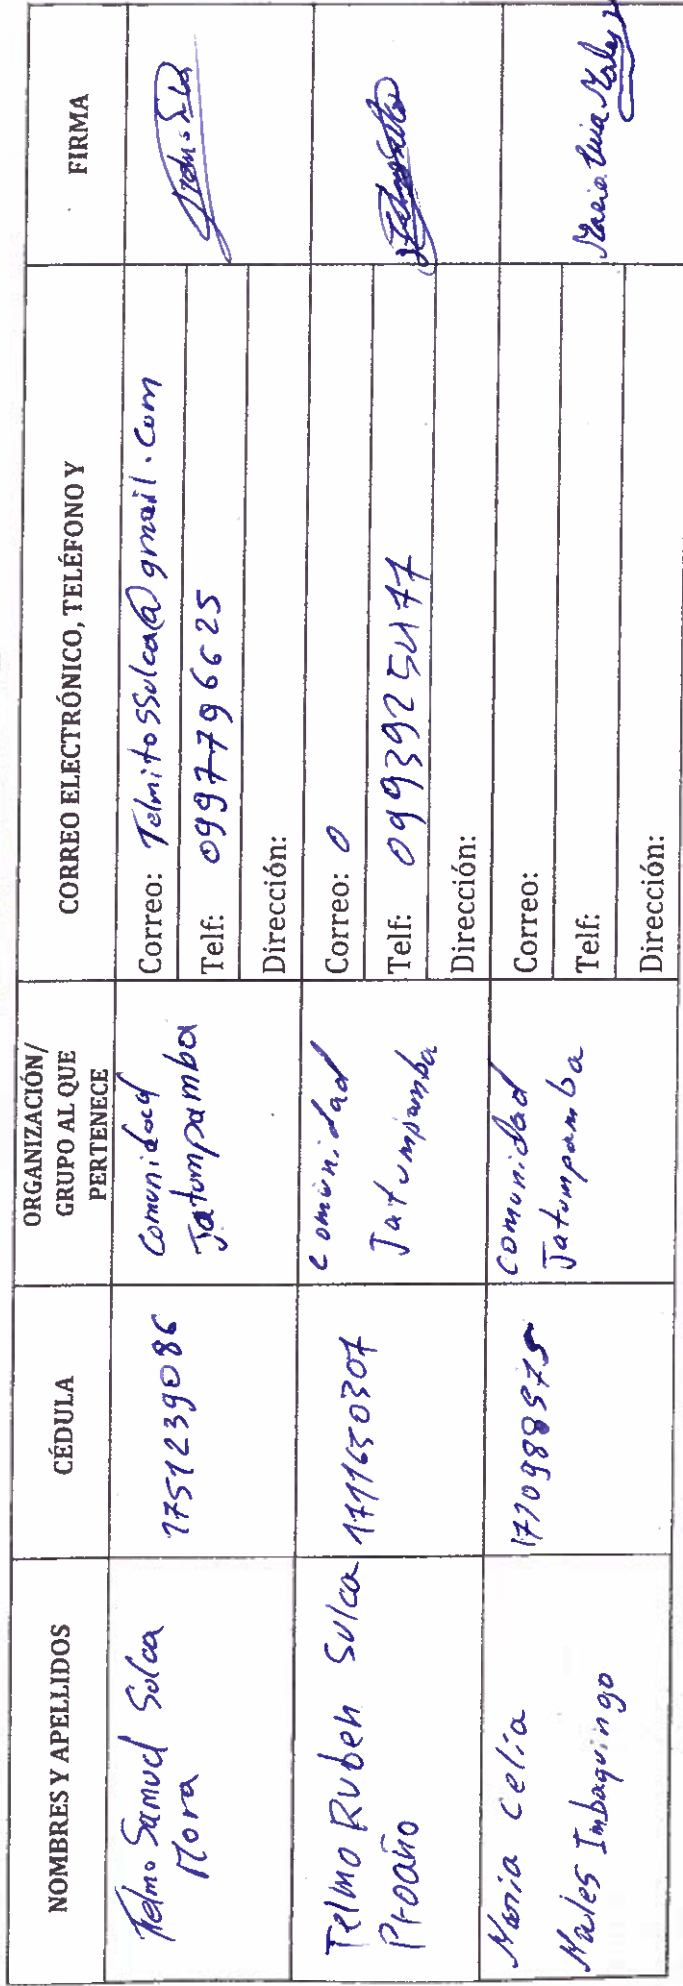 NOMBRES Y APELLIDOS
CÉDULA
ORGANIZACIÓN/
GRUPO AL QUE
PERTENECE
CORREO ELECTRÓNICO, TELÉFONO Y
FIRMA
Telmo Samuel Sulca
Mora
1751239086
Comunidad
Jatumpamba
Correo: Telmitossulca@gmail.com
Telf: 0997796625
Dirección:
Telmo Ruben Sulca
Proaño
1711650307
comunidad
Jatumpamba
Correo: 0
Telf: 0993925477
Dirección:
Maria Celia
Males Imbaquingo
1710988575
comunidad
Jatumpamba
Correo:
Telf:
Dirección: